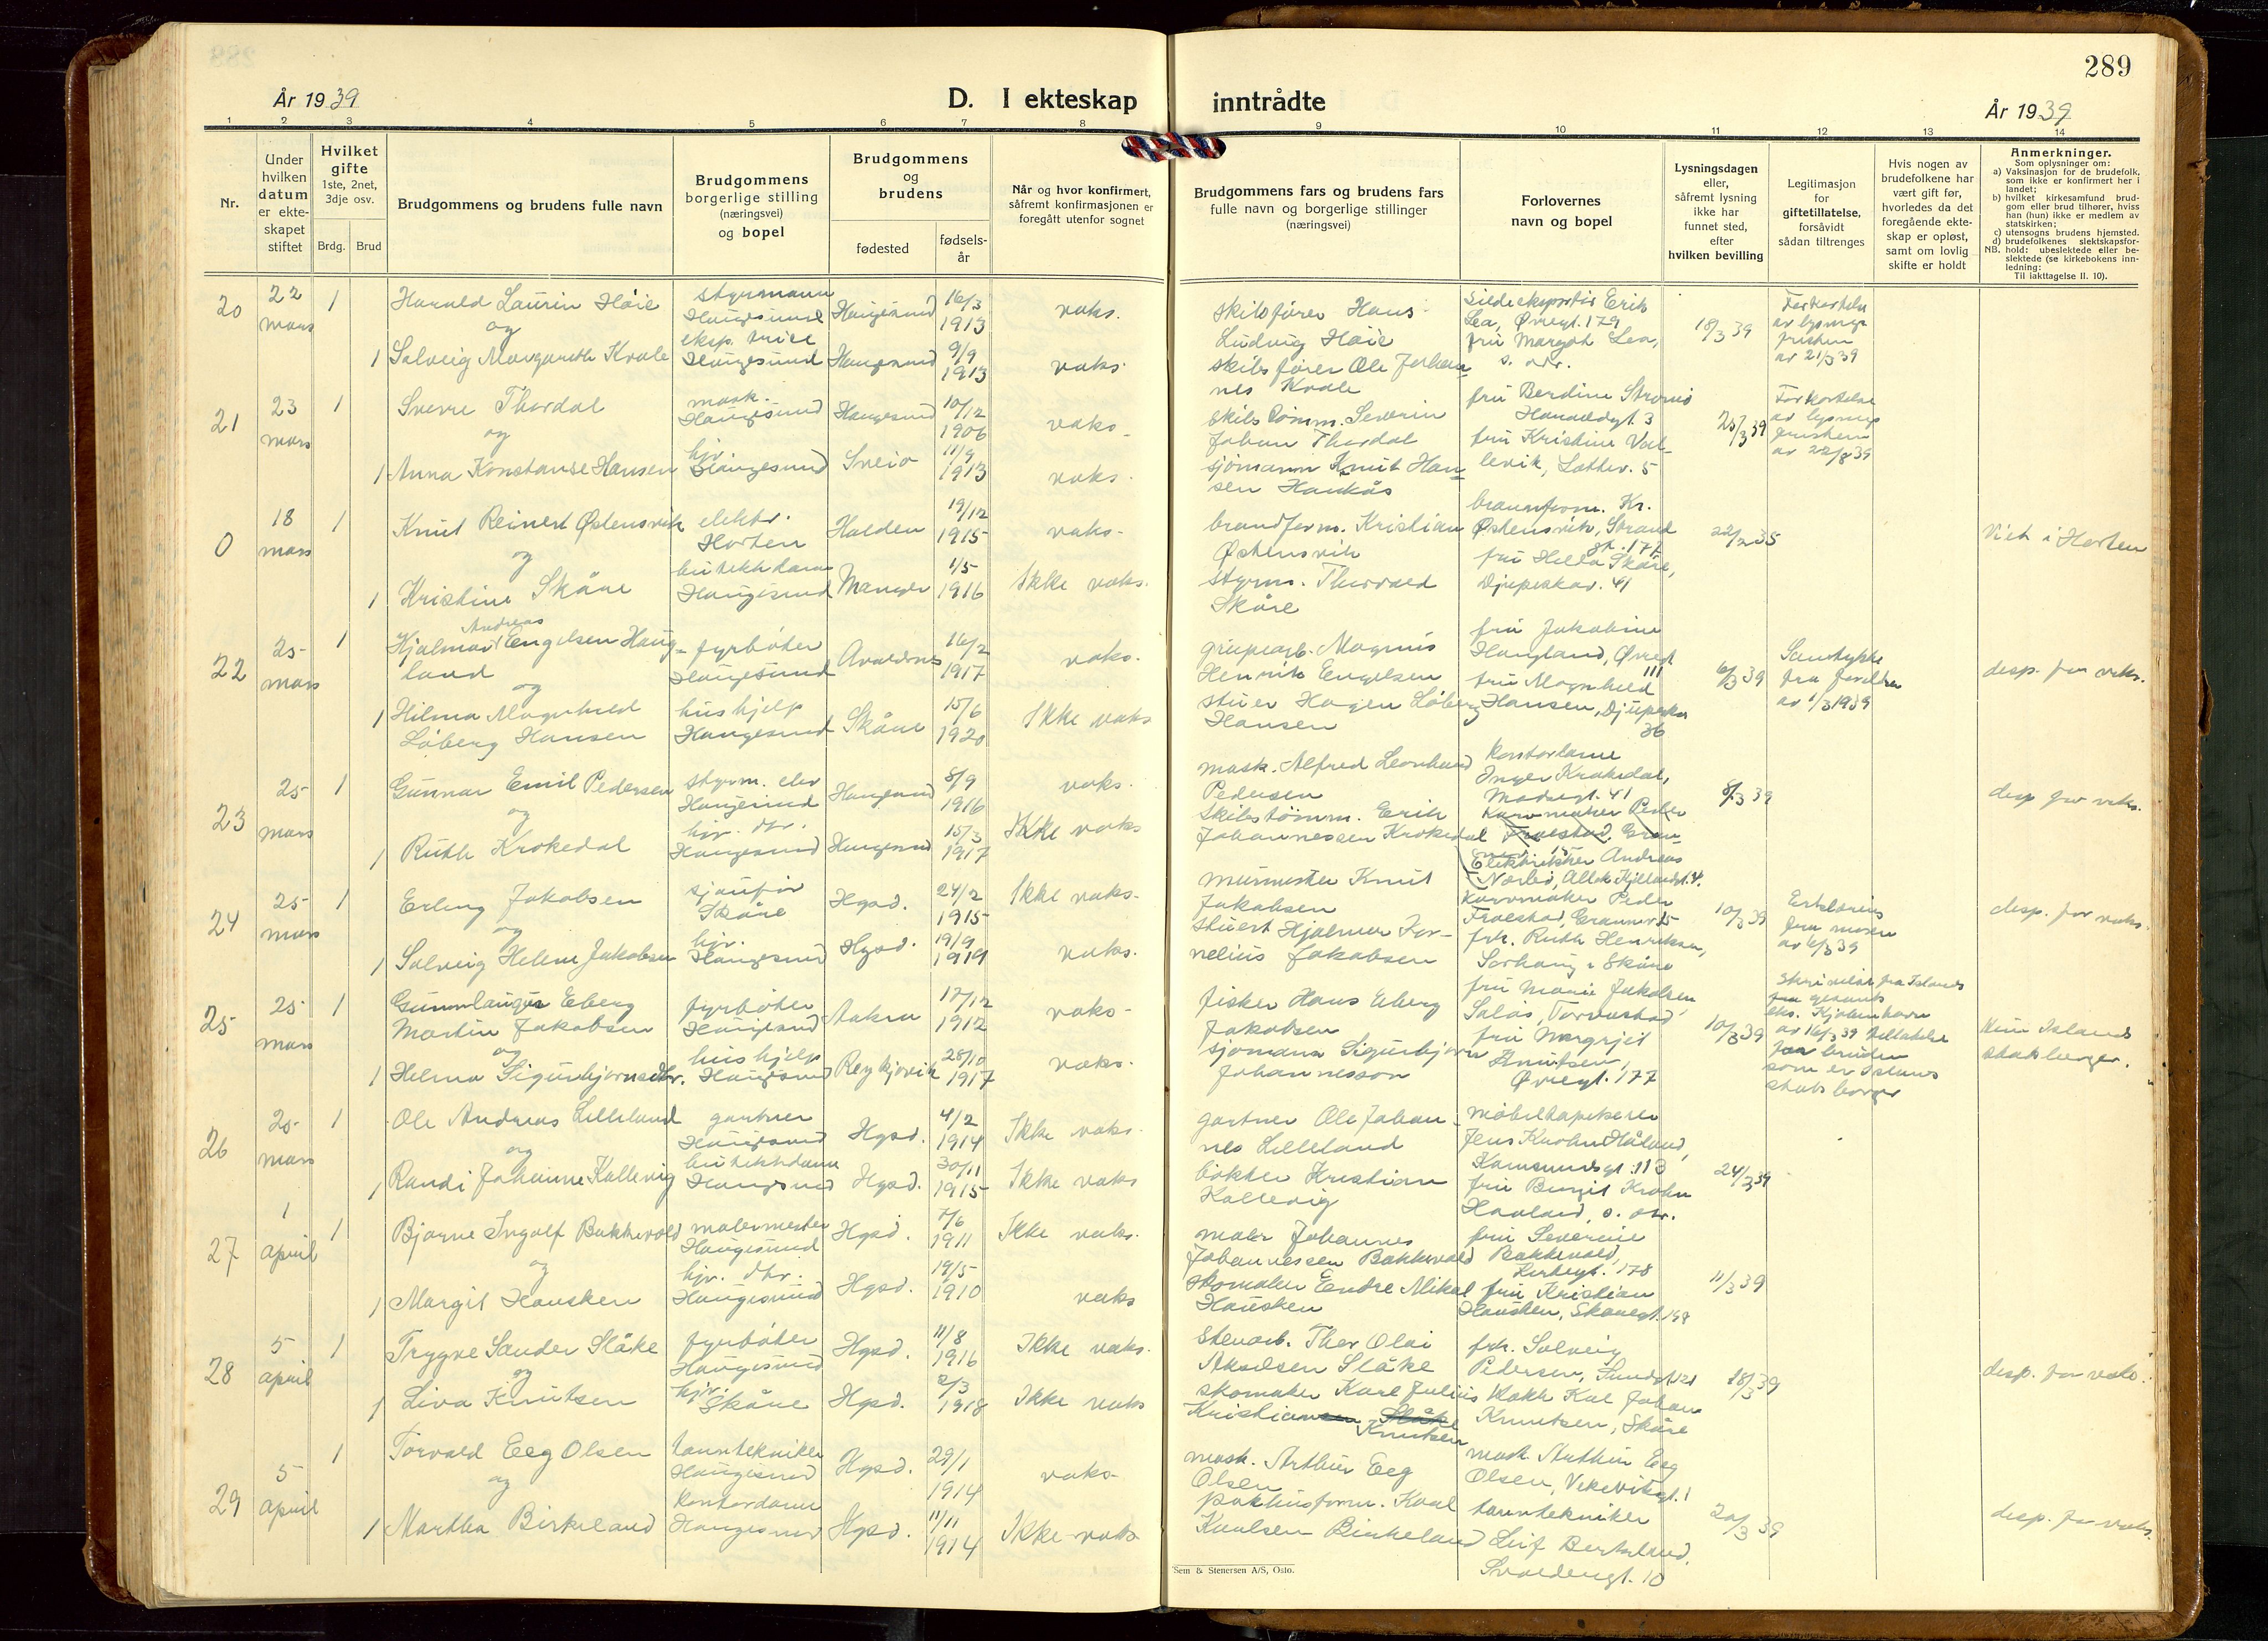 289
År 1939
D. I ekteskap inntrådte
År 1939
1 2 3 4 5 6 7 8 9 10 11 12 13 14
Nr.
Under
hvilken
datum
er ekte-
skapet
stiftet
Hvilket
gifte
1ste, 2net,
3dje osv.
Brdg. Brud
Brudgommens og brudens fulle navn
Brudgommens
borgerlige stilling
(næringsvei)
og bopel
Brudgommens
og
brudens
fødested
fødsels-
år
Når og hvor konfirmert,
såfremt konfirmasjonen er
foregått utenfor sognet
Brudgommens fars og brudens fars
fulle navn og borgerlige stillinger
(næringsvei)
Forlovernes
navn og bopel
Lysningsdagen
eller,
såfremt lysning
ikke har
funnet sted,
efter
hvilken bevilling
Legitimasjon
for
giftetillatelse,
forsåvidt
sådan tiltrenges
Hvis nogen av
brudefolkene har
vært gift før,
hvorledes da det
foregående ekte-
skap er opløst,
samt om lovlig
skifte er holdt
Anmerkninger.
Som oplysninger om:
a) Vaksinasjon for de brudefolk,
som ikke er konfirmert her i
landet;
b) hvilket kirkesamfund brud-
gom eller brud tilhører, hviss
han (hun) ikke er medlem av
statskirken;
c) utensogns brudens hjemsted.
d) brudefolkenes slektskapsfor-
NB. hold: ubeslektede eller be-
slektede (se kirkebokens inn-
ledning:
Til iakttagelse II. 10).
20
22
mars
1
Harald Laurin Høie
og
1 Solveig Margareth Kvale
styrmann
Haugesund
eksp. trise
Haugesund
Haugesund
Haugesund
16/3
1913
9/9
1913
vaks.
vaks.
skibsfører Hans
Ludvig Høie
skibsfører Ole Johan-
nes Kvale
Sildeeksportør Erik
Lea, Øvregt. 179
fru Margot Lea,
s. adr.
18/3 39
Forkortelse
av lysnings
fristen
av 21/3 39
21
23
mars
1
Sverre Thordal
og
1 Anna Konstanse Hansen
mask.
Haugesund
hjv.
Haugesund
Haugesund
Sveio
10/12
1906
11/9
1913
vaks.
vaks.
skibs tømm. Severin
Johan Thordal
sjømann Knut Han-
sen Haukås
fru Berdine Strømø
Haraldsgt. 3
fru Kristine Val-
levik, Lotter. 5
23/3 39
Forkortelse
av lysnings
fristen
av 22/3 39
0
18
mars
1
Knut Reinert Østensvik
og
1 Kristine Skåre
elektr.
Horten
butikkdame
Haugesund
Halden
Manger
19/12
1915
1/5
1916
vaks.
Ikke vaks.
brandform. Kristian
Østensvik
styrm. Thorvald
Skåre
brannform. Kr.
Østensvik, Strand
gt. 177
fru Hilla Skåre,
Djupaskar. 41
22/2 35
Viet i Horten
22
25
mars
1
Andreas
Hjalmar Engelsen Haug-
land
og
1 Hilma Magnhild
Løberg Hansen
fyrbøter
Haugesund
hushjelp
Haugesund
Avaldsnes
Skåre
16/2
1917
15/6
1920
vaks.
Ikke vaks
grubearb. Magnus
Henrik Engelsen
stuer Hagen Løberg
Hansen
fru Jakobine
Haugland, Øvregt
111
fru Magnhild
Hansen, Djupaskar
36
6/3 39
Samtykke
fra foreldre
av 1/3 1939
desp. for vaks.
23
25
mars
1
Gunnar Emil Pedersen
og
1 Ruth Krokedal
styrm. elev
Haugesund
hjv. dtr.
Haugesund
Haugesund
Haugesund
8/9
1916
15/3
1917
vaks.
Ikke vaks
mask. Alfred Leonhard
Pedersen
Skibstømm. Erik
Johannessen Krokedal
Kontordame
Inger Krokedal,
Madsegt. 41
Kurvmaker Peder
Froestad, Gran-
Elektriker Andreas
Nærbø,
8/3 39
desp for vaks.
24
25
mars
1
Erling Jakobsen
og
1 Solveig Helene Jakobsen
sjaufør
Skåre
hjv.
Haugesund
Hgsd.
Hgsd.
24/2
1915
19/9
1919
Ikke vaks.
vaks.
murmester Knut
Jakobsen
stuert Hjalmar Kor-
nelius Jakobsen
Kurvmaker Peder
Froestad, Grannv. 15
frk. Ruth Henriksen,
Sørhaug, Skåre
10/3 39
Erklæring
fra moren
av 6/3 39
desp. for vaks.
25
25
mars
1
Gunnlaugur Eberg
Martin Jakobsen
og
1 Helma Sigurbjørnsdtr.
fyrbøter
Haugesund
hushjelp
Haugesund
Aakra
Reykjavik
17/12
1912
28/10
1917
vaks.
vaks.
fisker Hans Eberg
Jakobsen
sjømann Sigurbjørn
Johannesson
fru Marie Jakobsen
Salås, Torvastad
fru Margrjet
Knutsen,
Øvregt. 177
10/3 39
Skrivelse fra Islands
gesandt
eks. Kjøbenhavn
av 16/3 39 tillatelse
for bruden
som er Islands
statsborger
Hun Islands
statsborger.
26
25
mars
1
Ole Andreas Lilleland
og
1 Randi Johanne Kallevig
gartner
Haugesund
butikkdame
Haugesund
Hgsd.
Hgsd.
4/2
1914
30/11
1915
Ikke vaks.
Ikke vaks
gartner Ole Johan-
nes Lilleland
bøkker Kristian
Kallevig
møbeltapetserer
Jens Krohn Håland,
Karmsundsgt. 113
fru Bergit Krohn
Haaland, s. adr.
24/3 39
27
1
april
1
Bjarne Ingolf Bakkevold
og
1 Margit Hausken
malermester
Haugesund
hjv. dtr.
Haugesund
Hgsd.
Hgsd.
7/6
1911
19/5
1910
Ikke vaks.
vaks
maler Johannes
Johannessen Bakkevold
skomaker Endre Mikal
Hausken
fru Severine
Bakkevold,
Kirkegt. 178
fru Kristian
Hausken, Skåregt. 198
11/3 39
28
5
april
1
Trygve Sander Slåke
og
1 Liva Knutsen
fyrbøter
Haugesund
hjv.
Skåre
Hgsd.
Hgsd.
11/8
1916
2/3
1918
Ikke vaks.
Ikke vaks
Stenarb. Thor Olai
Akselsen Slåke
skomaker Karl Julius
Kristiansen Slåke
Knutsen
frk. Solveig
Pedersen, Sundgt. 21
Kokk Kal Johan
Knutsen, Skåre
18/3 39
desp. for vaks.
29
5
april
1
Torvald Eeg Olsen
og
1 Martha Birkeland
tanntekniker
Haugesund
Kontordame
Haugesund
Hgsd.
Hgsd.
29/1
1914
11/11
1914
vaks.
Ikke vaks
mask. Arthur Eeg
Olsen
pakhusform. Karl
Knutsen Birkeland
mask. Arthur Eeg
Olsen, Vikevikgt. 1
tanntekniker
Leif Berkeland,
Svoldergt. 10
20/3 39
desp. for vaks.
Sem & Stenersen A/S, Oslo.